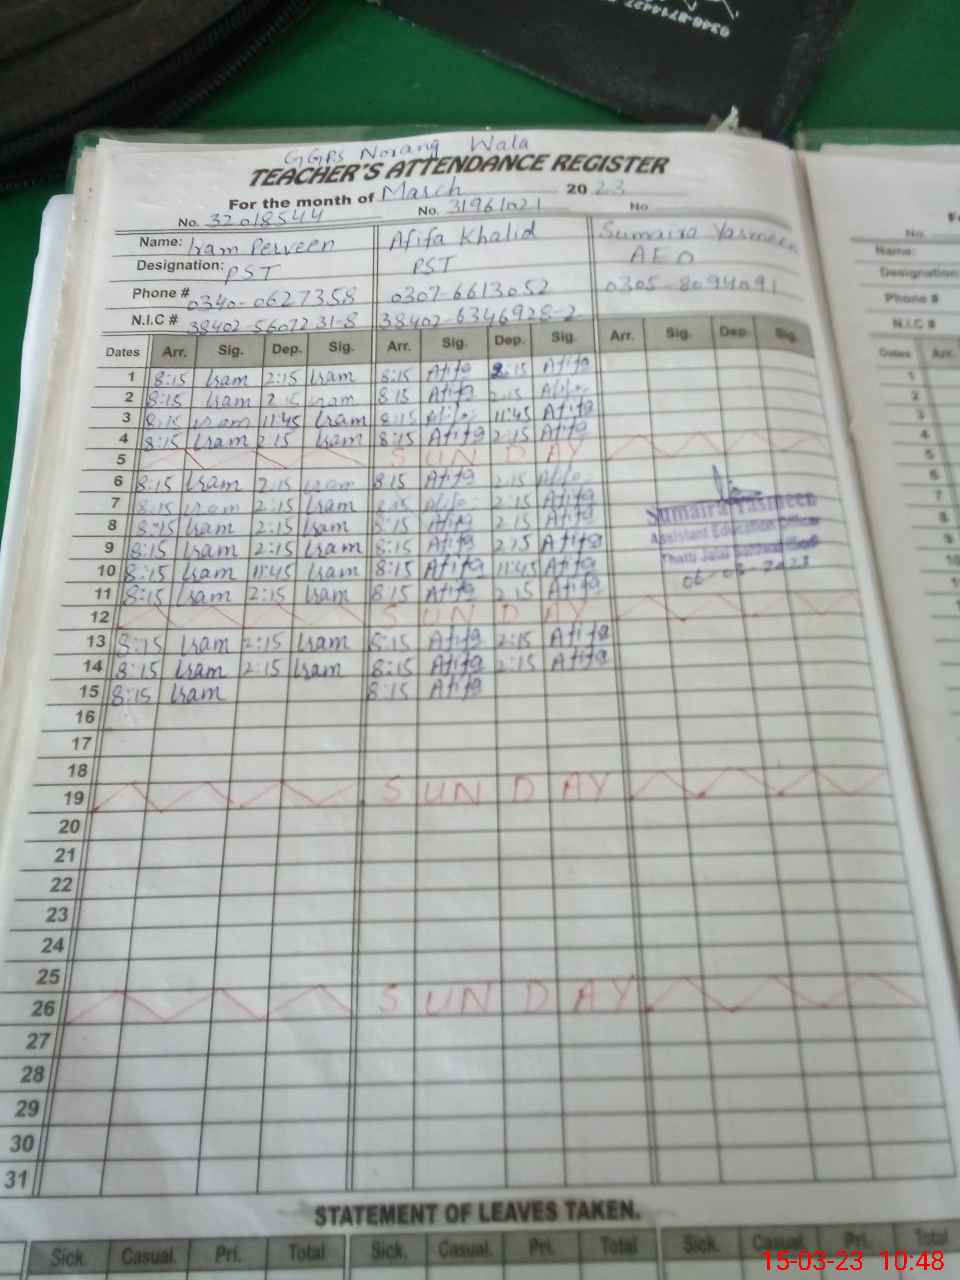 GGPS Norang Wala
TEACHER'S ATTENDANCE REGISTER
For the month of March 2023
No. 32018544 No. 31961021 No
Name: Iram Perveen Afifa Khalid Sumaira Yasmeen
Designation: PST PST AEO
Phone # 0340-0627358 0307-6613052 0305-8094091
N.I.C # 38402-5607231-8 38402-6346928-2
Dates Arr. Sig. Dep. Sig. Arr. Sig. Dep. Sig. Arr. Sig. Dep. Sig.
1 8:15 Iram 2:15 Iram 8:15 Afifa 2:15 Afifa
2 8:15 Iram 2:15 Iram 8:15 Afifa 2:15 Afifa
3 8:15 Iram 11:45 Iram 8:15 Afifa 11:45 Afifa
4 8:15 Iram 2:15 Iram 8:15 Afifa 2:15 Afifa
5 SUNDAY
6 8:15 Iram 2:15 Iram 8:15 Afifa 2:15 Afifa
7 8:15 Iram 2:15 Iram 8:15 Afifa 2:15 Afifa
8 8:15 Iram 2:15 Iram 8:15 Afifa 2:15 Afifa
9 8:15 Iram 2:15 Iram 8:15 Afifa 2:15 Afifa
10 8:15 Iram 11:45 Iram 8:15 Afifa 11:45 Afifa
11 8:15 Iram 2:15 Iram 8:15 Afifa 2:15 Afifa
Sumaira Yasmeen
Assistant Education Officer
06-03-2023
12 SUNDAY
13 8:15 Iram 2:15 Iram 8:15 Afifa 2:15 Afifa
14 8:15 Iram 2:15 Iram 8:15 Afifa 2:15 Afifa
15 8:15 Iram 8:15 Afifa
16
17
18
19 SUNDAY
20
21
22
23
24
25
26 SUNDAY
27
28
29
30
31
STATEMENT OF LEAVES TAKEN.
Sick Casual. Pri. Total Sick. Casual. Pri. Total Sick. Casual. Pri. Total
No.
Name:
Designation
Phone #
N.I.C #
Dates Arr.
1
2
3
4
5
6
7
8
9
10
15-03-23 10:48